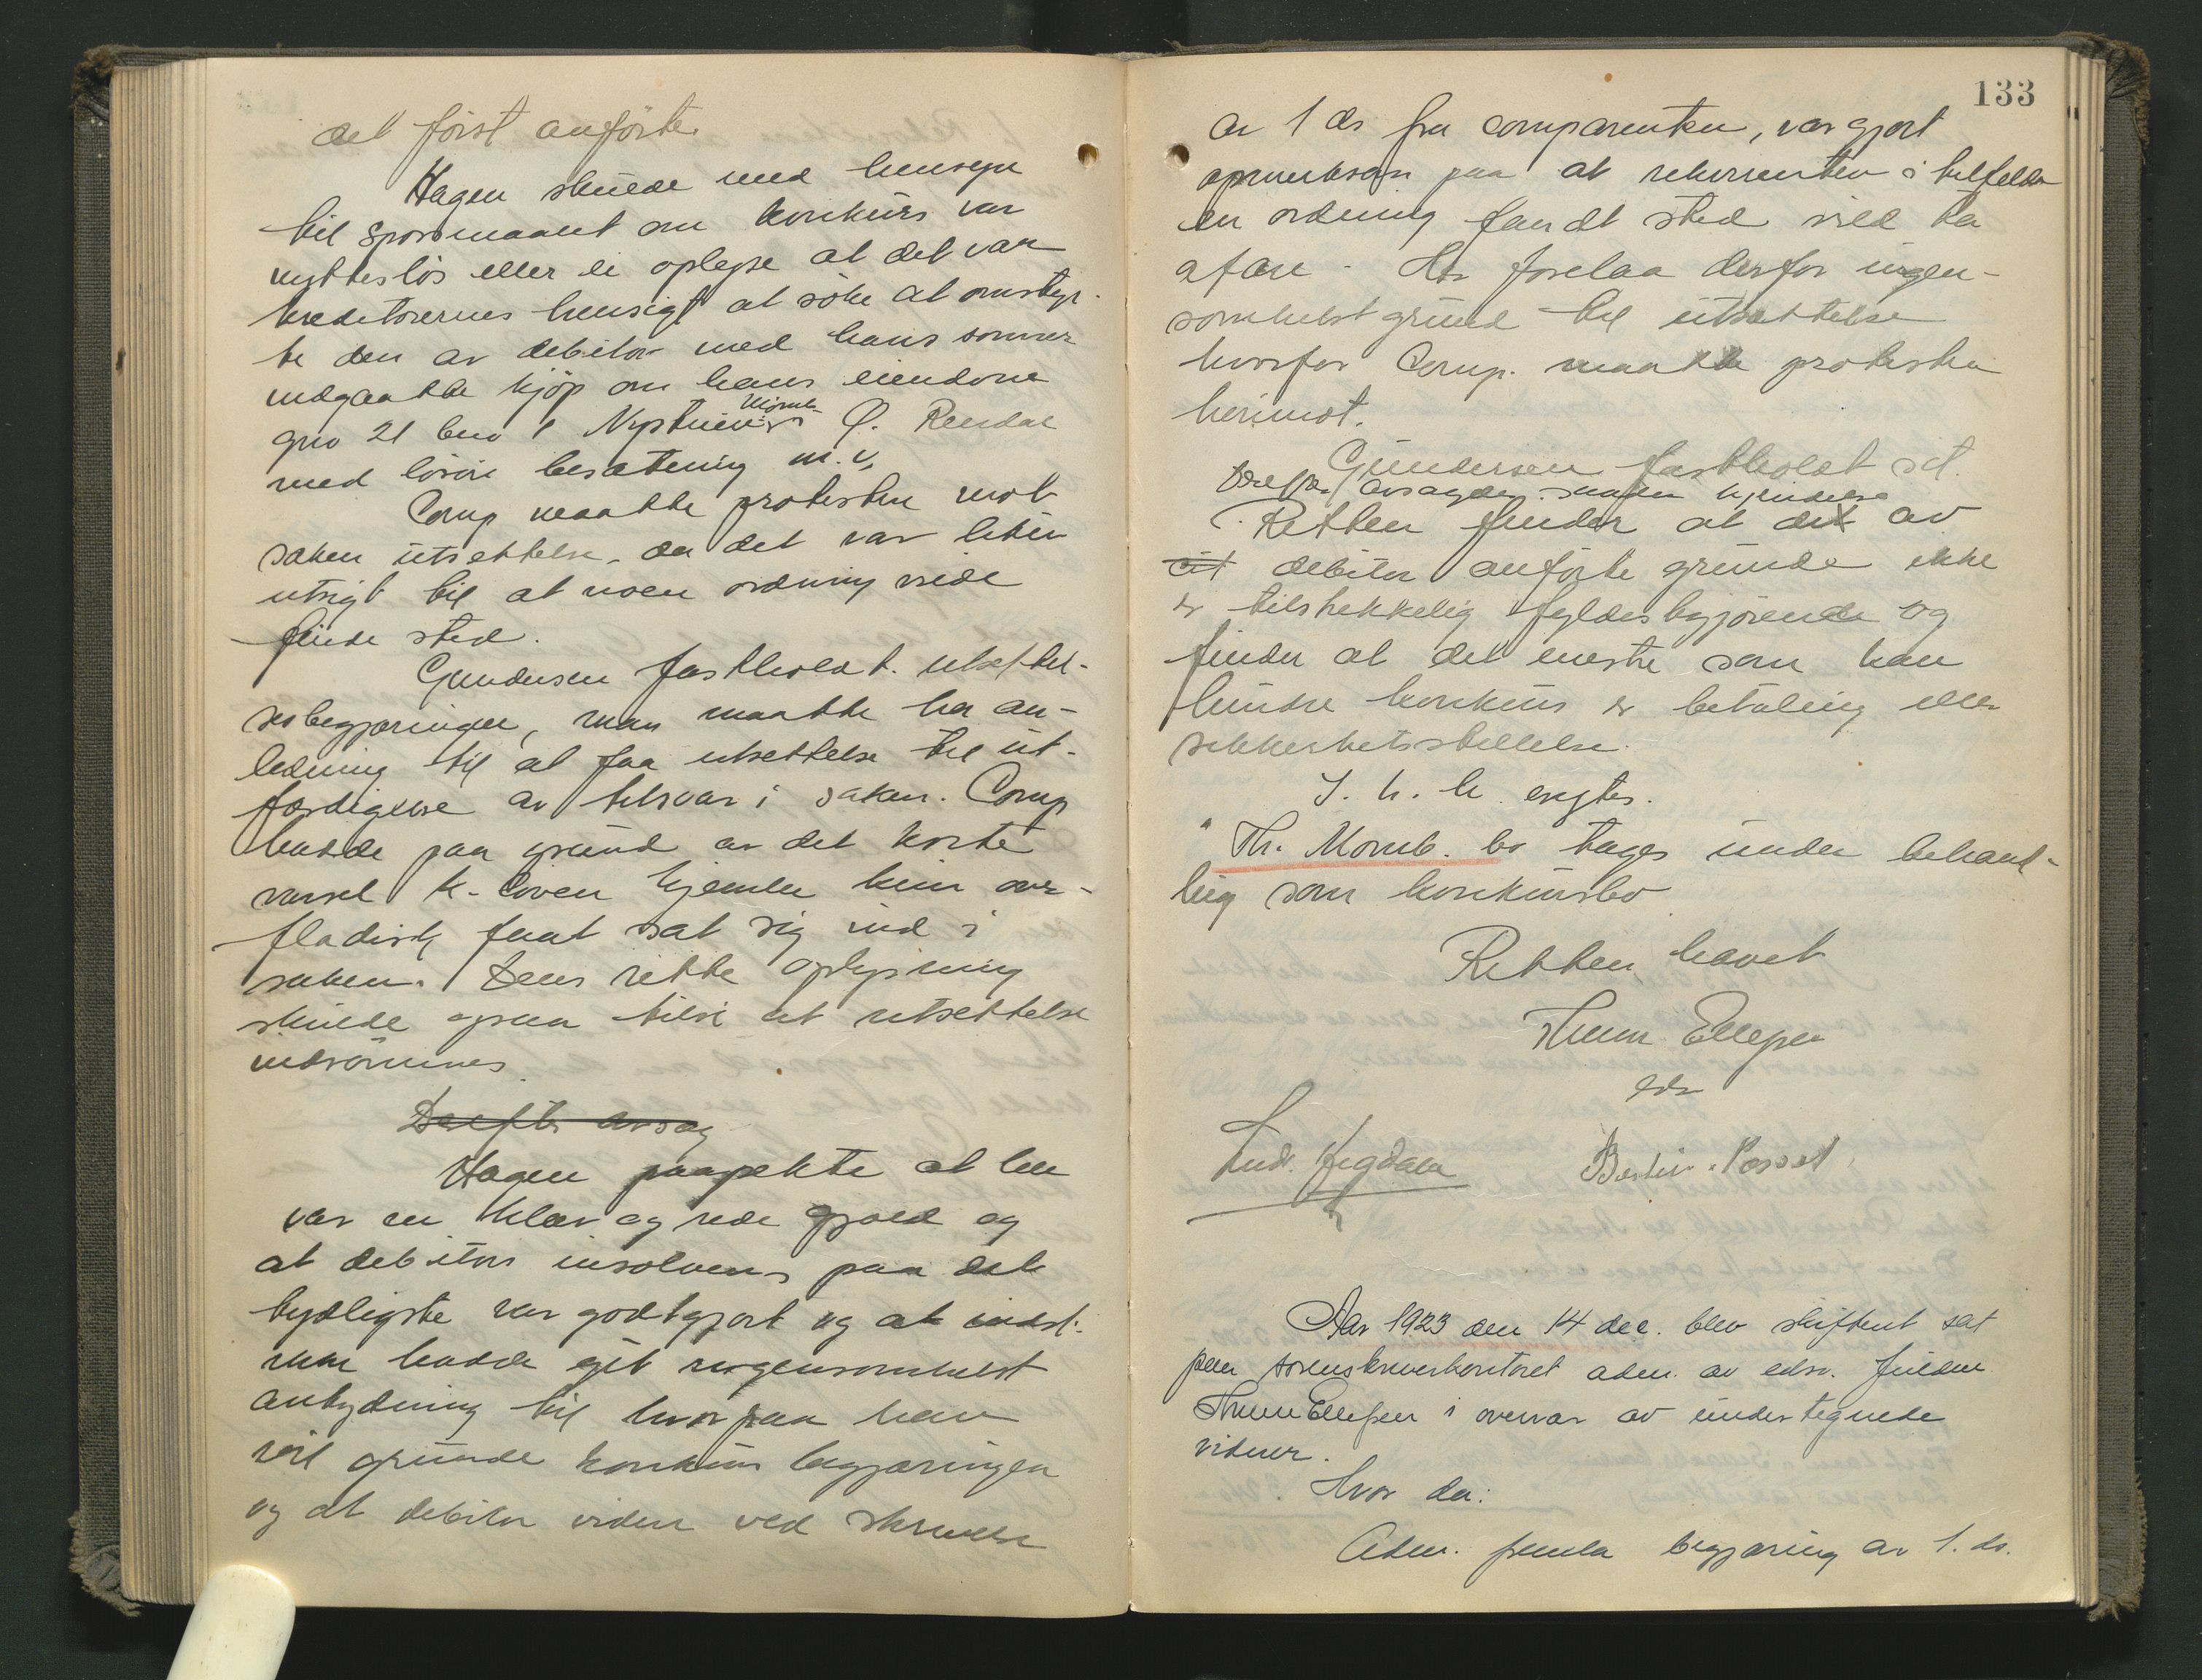 det först anförte.
Hagen skulde med hensyn
til spörsmaalet om konkurs var
nyttelös eller ei oplyse at det var
kreditorernes hensigt at söke at omstyr-
te den av debitor med hans sönner
indgaatte kjöp om hans eiendom
gno 21 bno 1 Nystuen Momb Ö. Rendal
med lösöre besætning m.v.
Comp maatte protestere mot
saken utsættelse, da det var liten
utsigt til at noen ordning vilde
finde sted.
Gundersen fastholdt utsættel-
sesbegjæringen, man maatte ha an-
ledning til at faa utsættelse til ut-
færdigelse av tilsvar i saken. Comp
hadde paa grund av det korte
varsel k-loven hjemler kun over-
fladisk faat sat sig ind i
saken. Dens rette oplysning
skulde ogsaa tilsi at utsættelse
indrömmes.
Derefter avsag
Hagen paapekte at her
var en klar og rede gjæld og
at debitors insolvens paa det
tydligste var godtgjort og at
man hadde git nogensomhelst
antydning til hvorpaa han
vil grunde konkurs begjæringen
og at debitor viden ved skrivelse
av 1 ds fra comparenten, var gjort
opmerksom paa at rekvirenten i tilfelde
en ordning fandt sted vild ta
affære. Her forelaa derfor ingen-
somhelst grund til utsættelse
hvorfor Comp. maatte protestere
herimot.
Gundersen fastholdt sit.
Derefter avsagdes saadan kjendelse
Retten finder at det av
debitor anförte grunde ikke
er tilstrekkelig fyldestgjörende og
finder at det eneste som kan
hindre konkurs er betaling eller
sikkerhetsstillelse.
T. h. b. eragtes.
"Th. Momb. bo tages under behand-
ling som konkursbo
Retten hævet
Thune Ellefsen
eds
Lud. Jegdalen
133
Aar 1923 den 14 dec. blev skifteret sat
paa sorenskriverkontoret adm. av edsv. fuldm.
Thune Ellefsen i overvær av undertegnede
vidner.
Hvor da:
Adm. fremla begjæring av 1. ds.